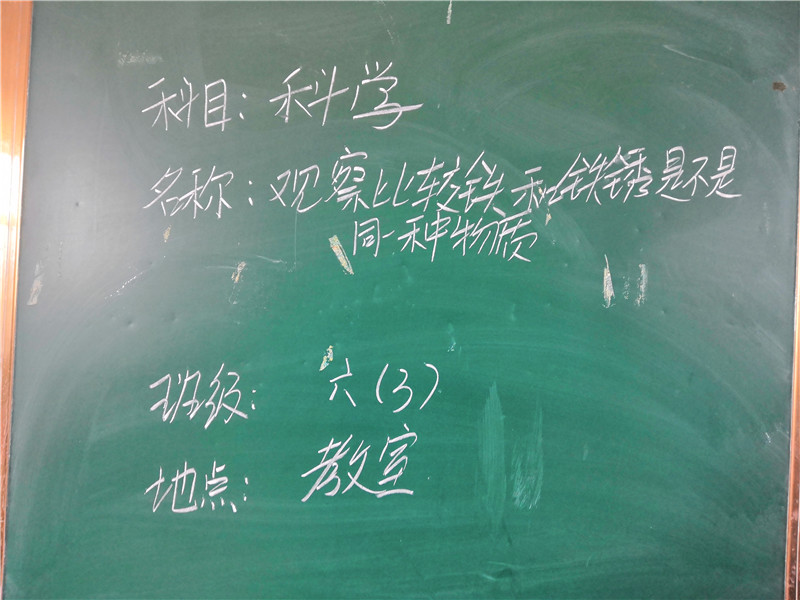 科目：科学
名称：观察比较铁和铁锈是不是
同一种物质
班级：六（3）
地点：教室